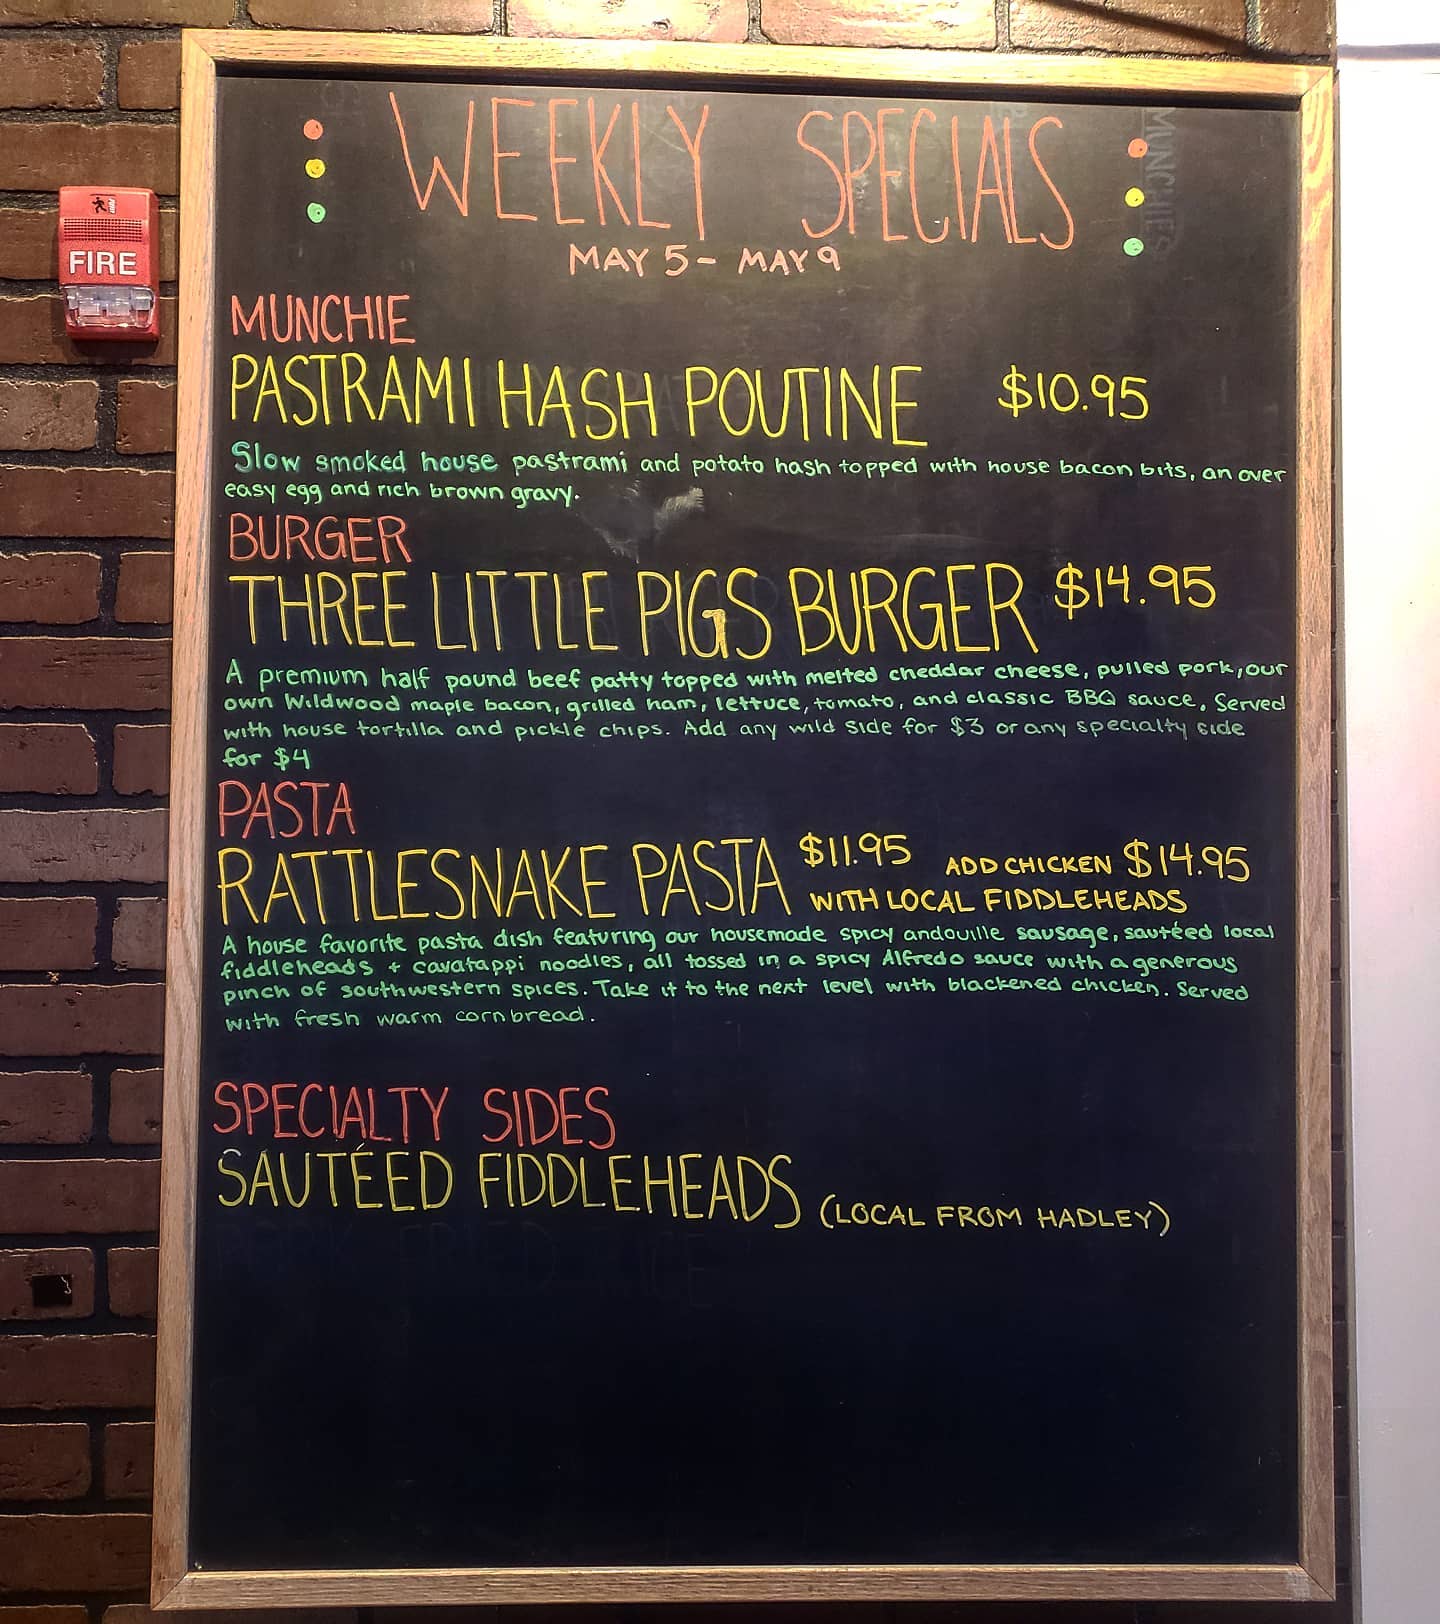 WEEKLY SPECIALS
MAY 5 - MAY 9
FIRE
MUNCHIES
MUNCHIE
PASTRAMI HASH POUTINE $10.95
Slow smoked house pastrami and potato hash topped with house bacon bits, an over
easy egg and rich brown gravy.
BURGER
THREE LITTLE PIGS BURGER $14.95
A premium half pound beef patty topped with melted cheddar cheese, pulled pork, our
own Wildwood maple bacon, grilled ham, lettuce, tomato, and classic BBQ sauce. Served
with house tortilla and pickle chips. Add any wild side for $3 or any specialty side
for $4
PASTA
RATTLESNAKE PASTA $11.95 ADD CHICKEN $14.95
WITH LOCAL FIDDLEHEADS
A house favorite pasta dish featuring our housemade spicy andouille sausage, sautéed local
fiddleheads + cavatappi noodles, all tossed in a spicy Alfredo sauce with a generous
pinch of southwestern spices. Take it to the next level with blackened chicken. Served
with fresh warm cornbread.
SPECIALTY SIDES
SAUTÉED FIDDLEHEADS (LOCAL FROM HADLEY)